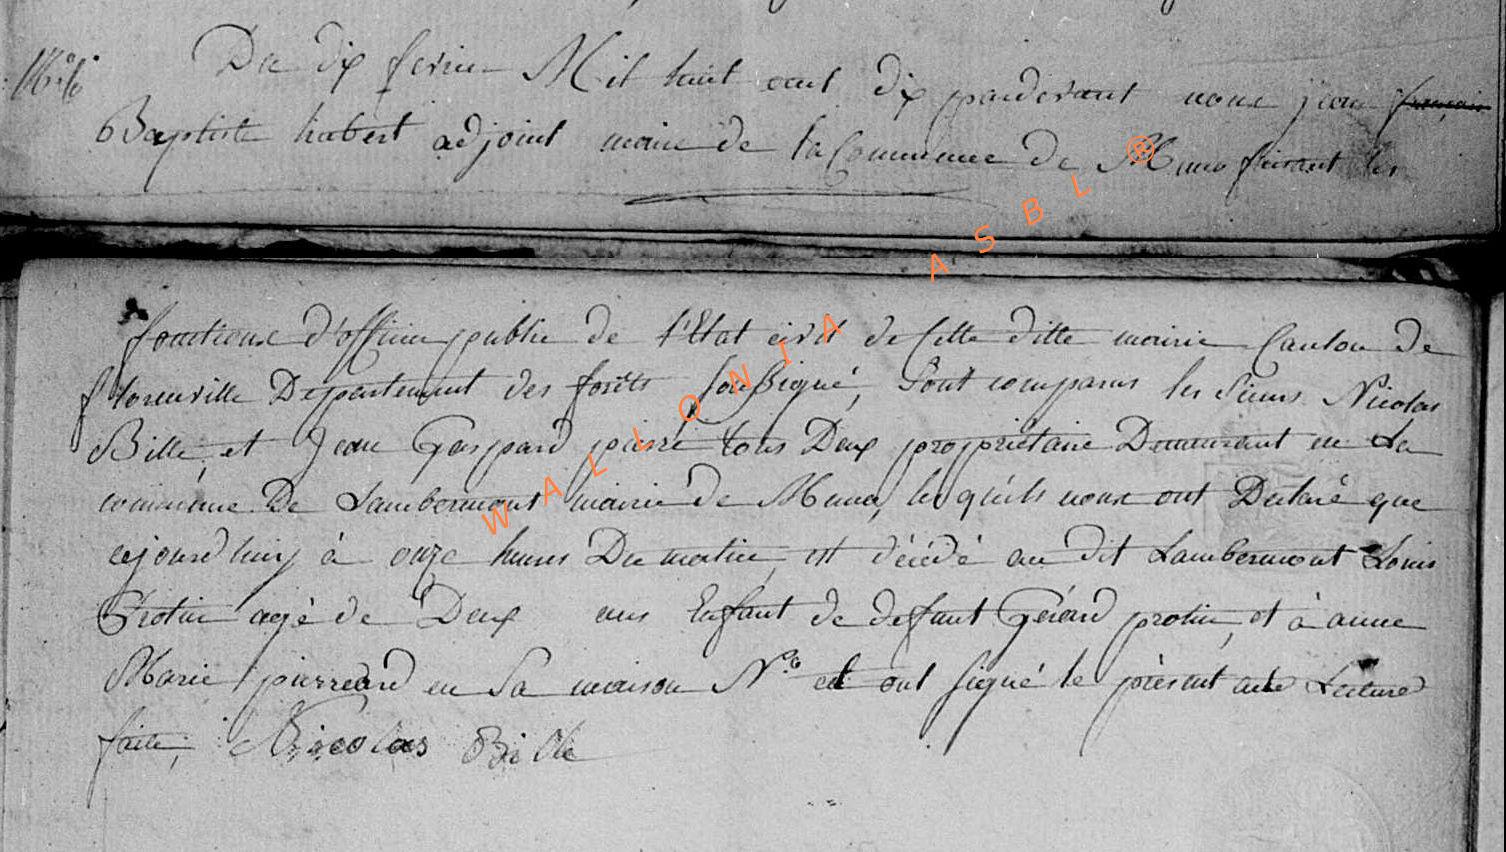 N° 6
Du dix fevrier Mil huit cent dix pardevant nous jean francois
Baptiste hubert adjoint maire de la Commune de Muno faisant les
fonctions d'officier public de l'Etat civil de Cette ditte mairie Canton de
florenville Departement des forêts Soussigné, Sont comparus les Sieurs Nicolas
Bille, et Jean Gaspard tous Deux proprietaire Demeurant en La
commune De Lambermont mairie de Muno, lesquels nous ont Declaré que
ajourdhuy à onze heures Du matin, est décédé au dit Lambermont Louis
Protin agé de Deux ans Enfant de deffunt Gérard protin, et à anne
Marie pierrard en Sa maison N° 6 et ont signé le présent acte Lecture
faite, Nicolas Bille
WALLONIA ASBL ®